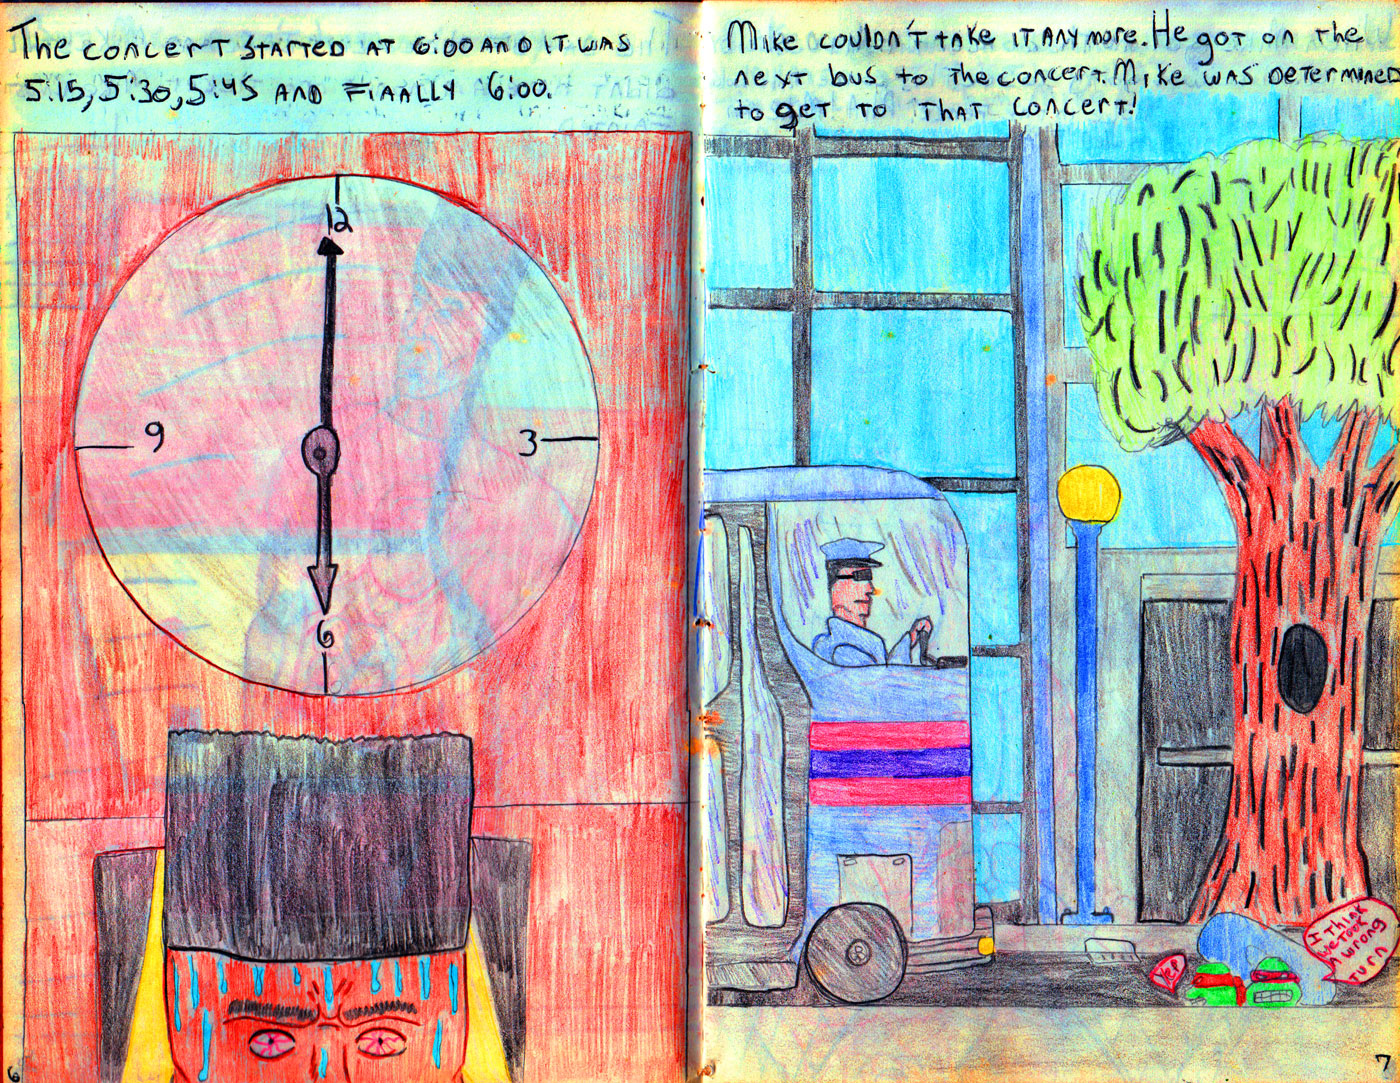 The concert started at 6:00 and it was
5:15, 5:30, 5:45 and finally 6:00.
12
9
3
6
6
Mike couldn't take it anymore. He got on the
next bus to the concert. Mike was determined
to get to that concert!
Yep
I think
we took
a wrong
turn
7